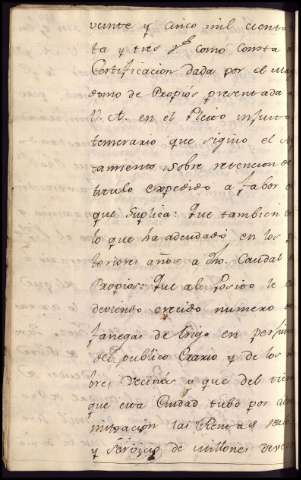 veinte y cinco mil ciento
ta y tres rs como consta
Certificacion dada por el
domo de Propios presentada
V. A. en el Pleito injust
temerario que siguio el
camiento sobre retencion de
titulo expedido a fabor
que suplica: Que tambien
lo que ha adeudado en los
teriores años a dho. Caudal
Propios: Que al Posito le
deviendo crecido numero
fanegas de trigo en perju
del publico Erario y de los
bres vecinos a que del tiem
que esta Ciudad tubo por
ministracion las Rentas
y servicio de millones